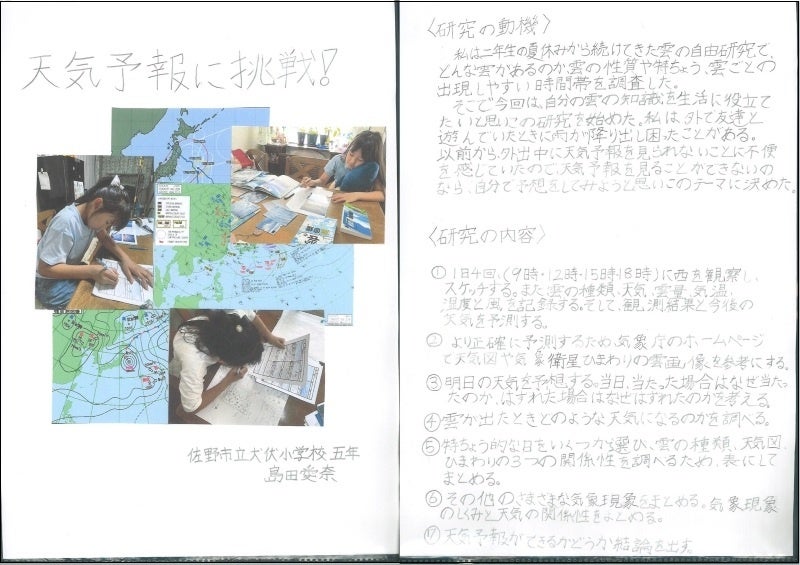 天気予報に挑戦!
佐野市立犬伏小学校 五年
島田愛奈
〈研究の動機〉
私は二年生の夏休みから続けてきた雲の自由研究で、
どんな雲があるのか、雲の性質や特ちょう、雲ごとの
出現しやすい時間帯を調査した。
そこで今回は、自分の雲の知識を生活に役立て
たいと思いこの研究を始めた。私は、外で友達と
遊んでいたときに雨が降り出し困ったことがある。
以前から、外出中に天気予報を見られないことに不便
を感じていたので、天気予報を見ることができないの
なら、自分で予想をしてみようと思いこのテーマに決めた。
〈研究の内容〉
① 1日4回、(9時・12時・15時・18時)に西を観察し、
スケッチする。また雲の種類、天気、雲量、気温、
湿度と風を記録する。そして、観測結果と今後の
天気を予測する。
② より正確に予測するため、気象庁のホームページ
で天気図や気象衛星ひまわりの雲画像を参考にする。
③ 明日の天気を予想する。当日、当たった場合はなぜ当たっ
たのか、はずれた場合はなぜはずれたのかを考える。
④ 雲が出たときどのような天気になるのかを調べる。
⑤ 特ちょう的な日をいくつか選び、雲の種類、天気図、
ひまわりの3つの関係性を調べるため、表にして
まとめる。
⑥ その他のさまざまな気象現象をまとめる。気象現象
のしくみと天気の関係性をまとめる。
⑦ 天気予報ができるかどうか結論を出す。